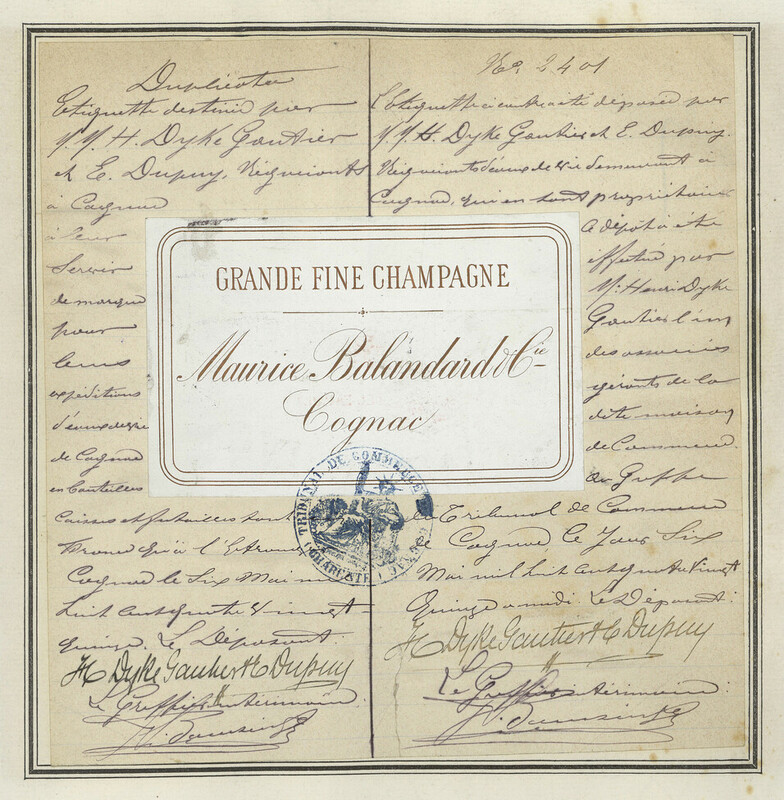 Duplicata
Etiquette destinée par
M.M. H. Dyke Gautier
et E. Dupuy, Négociants
à Cognac
à leur
Servir
de marque
pour
leurs
expéditions
d'eaux de vie
de Cognac
en bouteilles
caisses et futailles tant
France qu'à l'Etranger
Cognac le Six Mai mil
huit cent quatre vingt
quinze Le Déposant:
H Dyke Gautier & E Dupuy
Le Greffier intérimaire
No 2401
L'etiquette ci contre a été déposée par
M.M. H. Dyke Gautier et E. Dupuy.
Négociants d'eaux de vie demeurant à
Cognac, qui en sont propriétaires
Ce dépôt a été
effectué par
M. Henri Dyke
Gautier l'un
des associés
gérants de la
dite maison
de Commerce
au Greffe
du Tribunal de Commerce
Cognac le Jour Six
Mai mil huit cent quatre vingt
Quinze à midi Le Déposant:
H Dyke Gautier & E Dupuy
Le Greffier intérimaire:
GRANDE FINE CHAMPAGNE
Maurice Balandard & Cie
Cognac
TRIBUNAL DE COMMERCE
CHARENTE